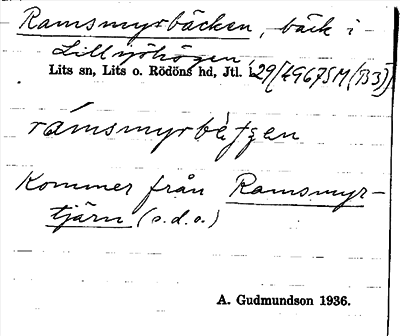 Ramsmyrbäcken, bäck i
Lillsjöhögen,
Lits sn, Lits o. Rödöns hd, Jtl.
rámsmyrbèʈʂen
Kommer från Ramsmyr-
tjärn (s.d.o.)
A. Gudmundson 1936.